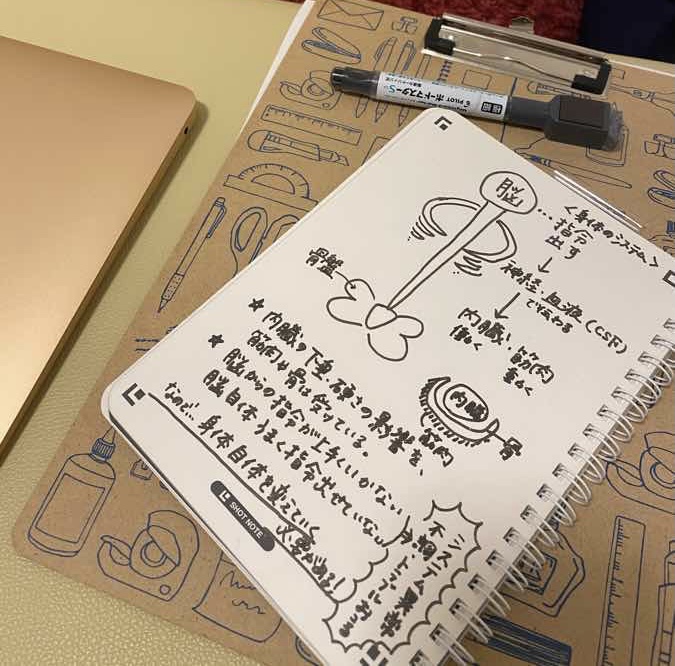 <身体のシステム>
脳
…指令
出す
↓
神経・血液(CSF)
で伝わる
↓
内臓、筋肉
働く 動く
骨盤
内臓
筋肉
骨
★内臓の下垂・硬さの影響を、
筋肉や骨は受けている。
★脳からの指令が上手くいかない
脳自体うまく指令出せていない
なので…身体自体を変えていく
必要がある!
システム異常
不調
トラブル
SHOT NOTE
PILOT ボードマスターS